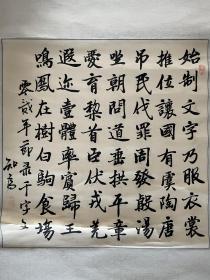 始制文字乃服衣裳
推位讓國有虞陶唐
吊民伐罪周發殷湯
坐朝問道垂拱平章
愛育黎首臣伏戎羌
遐迩壹體率賓歸王
鳴鳳在樹白駒食場
零貳年節录千字文